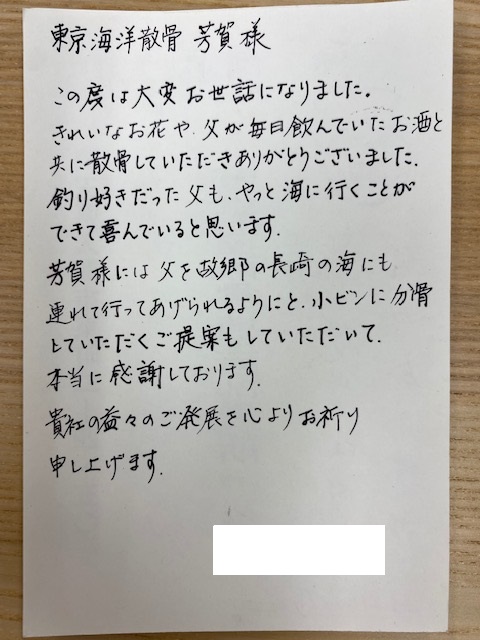 東京海洋散骨 芳賀様
この度は大変お世話になりました。
きれいなお花や、父が毎日飲んでいたお酒と
共に散骨していただきありがとうございました。
釣り好きだった父も、やっと海に行くことが
できて喜んでいると思います。
芳賀様には父を故郷の長崎の海にも
連れて行ってあげられるようにと、小ビンに分骨
していただくご提案もしていただいて、
本当に感謝しております。
貴社の益々のご発展を心よりお祈り
申し上げます。